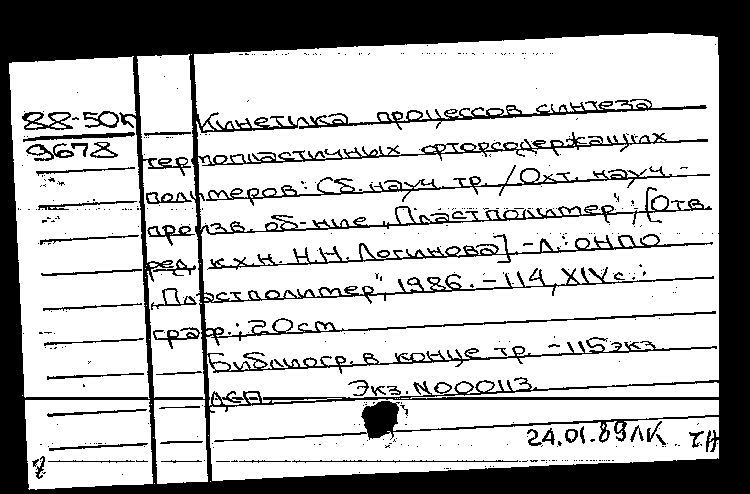 88-50к Кинетика процессов синтеза
9678 термопластичных фторсодержащих
полимеров: Сб. науч. тр. / Охт. науч.-
произв. об-ние „Пластполимер"; [Отв.
ред. к.х.н. Н.Н. Логинова]. - Л.: ОНПО
„Пластполимер", 1986. - 114, XIV с.:
граф.; 20 cm.
Библиогр. в конце тр. - 115 экз.
ДСП. Экз. N000113.
24.01.89 ЛК